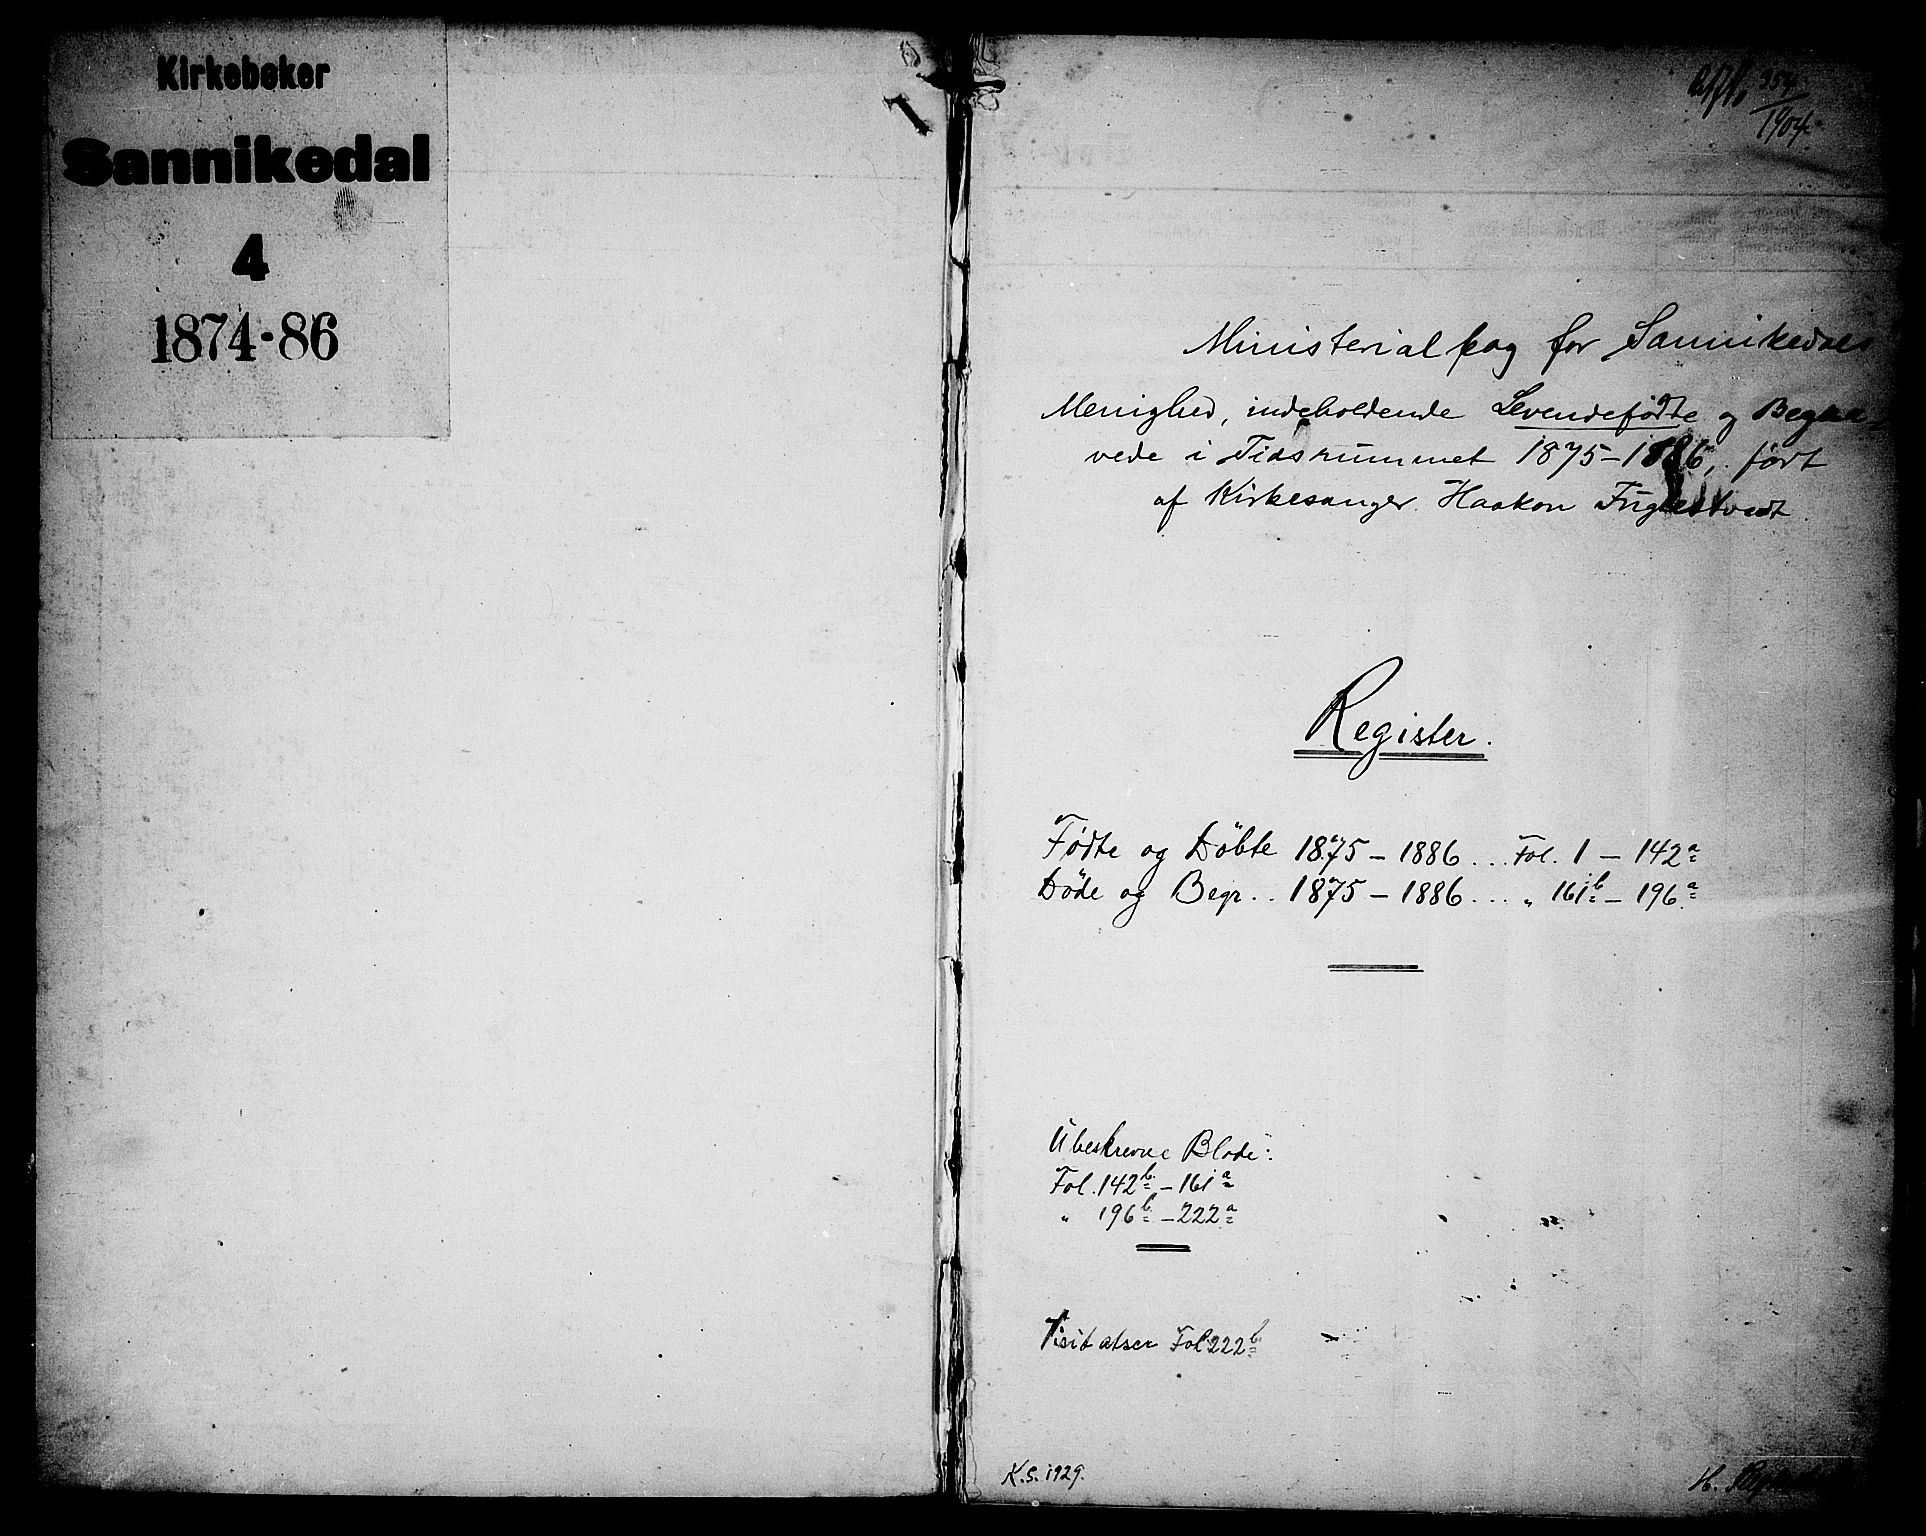 Kirkebøker
Sannikedal
4
1874-86
354
1904
Ministerialbog for Sannikedals
Menighed, indeholdende Levendefødte og Begra-
vede i Tidsrummet 1875-1886, ført
af Kirkesanger Haakon Fuglestvedt.
Register.
Fødte og Döbte 1875 - 1886 ... Fol. 1 - 142a
Döde og Begr. . 1875 - 1886 ... " 161b - 196a
Ubeskrevne Blade:
Fol. 142b - 161a
" 196b - 222a
Visitatser Fol 222b
K.S. 1929.
H.